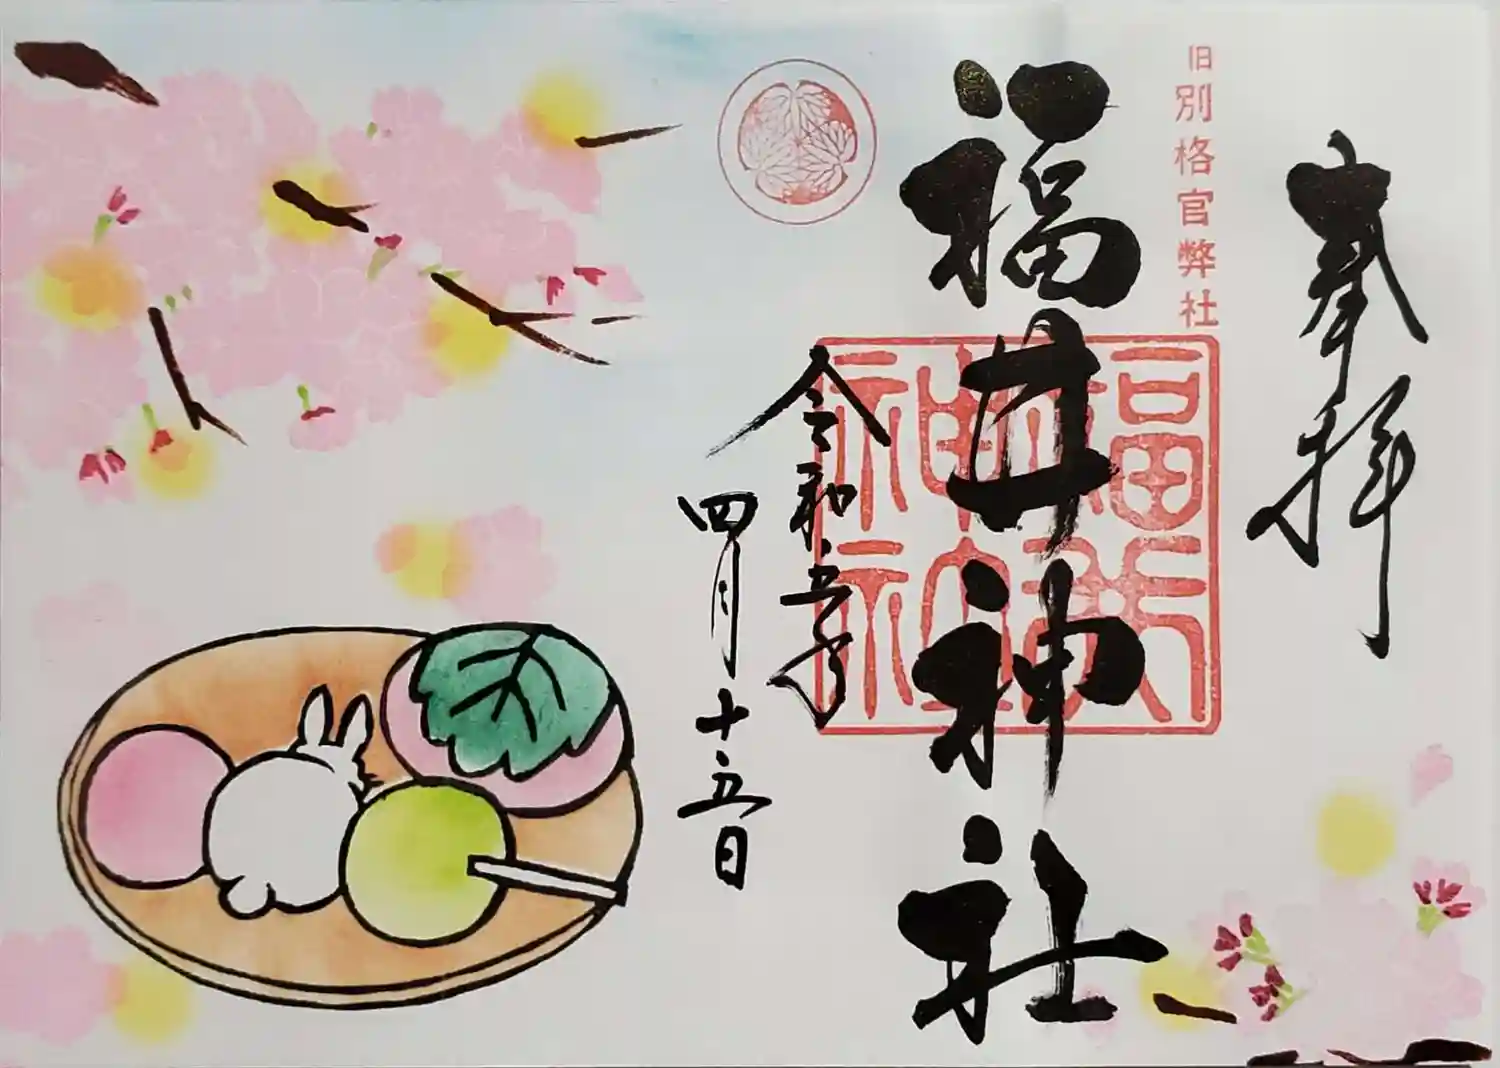 奉拝
旧別格官弊社
福井神社
福井神社
令和五年
四月十五日